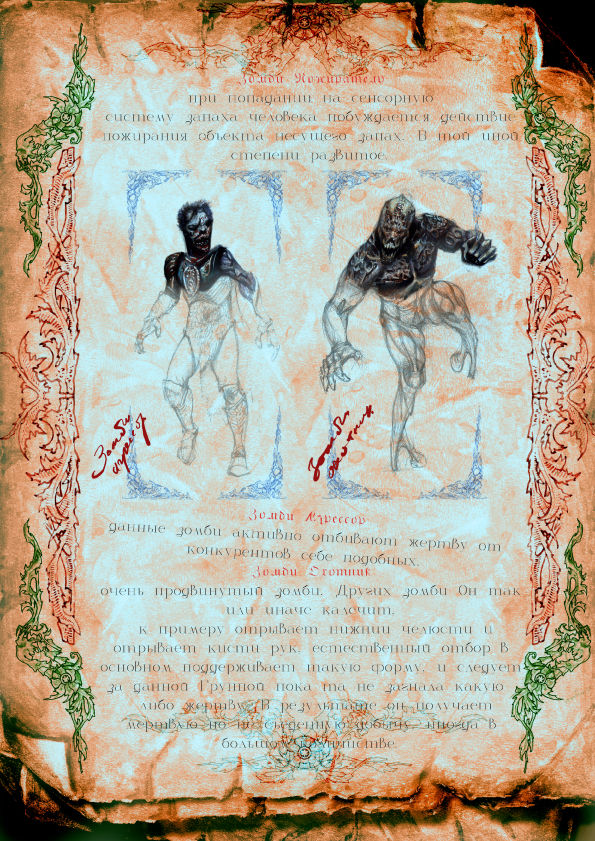 Зомби Пожиратель
при попадании на сенсорную
систему запаха человека побуждается действие
пожирания объекта несущего запах. В той иной
степени развитое.
Зомби
агрессор
Зомби
охотник
Зомби Агрессор
данные зомби активно отбивают жертву от
конкурентов себе подобных.
Зомби Охотник
очень продвинутый зомби. Других зомби Он так
или иначе калечит,
к примеру отрывает нижнии челюсти и
отрывает кисти рук. естественный отбор в
основном поддерживает такую форму, и следует
за данной Группой пока та не загнала какую
либо жертву. В результате он получает
мертвую но не съеденную добычу, иногда в
большом количистве.